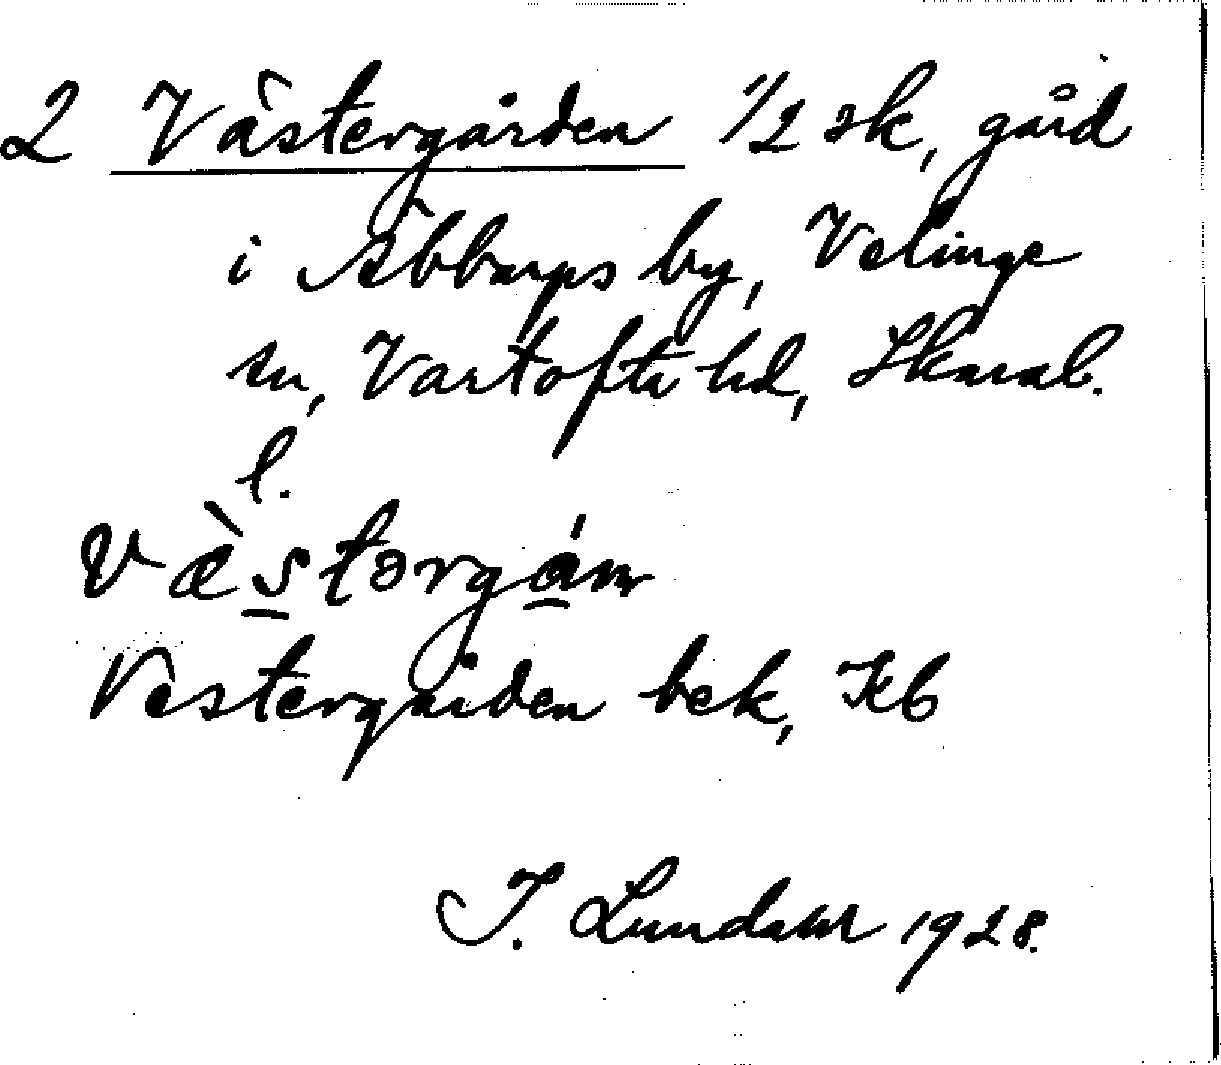 2 Västergården 1/2 sk, gård
i Äbbarps by, Velinge
sn, Vartofta hd, Skarab.
l.
Væ̀storgám
Vestergården bek, Kb
I. Lundahl 1928.